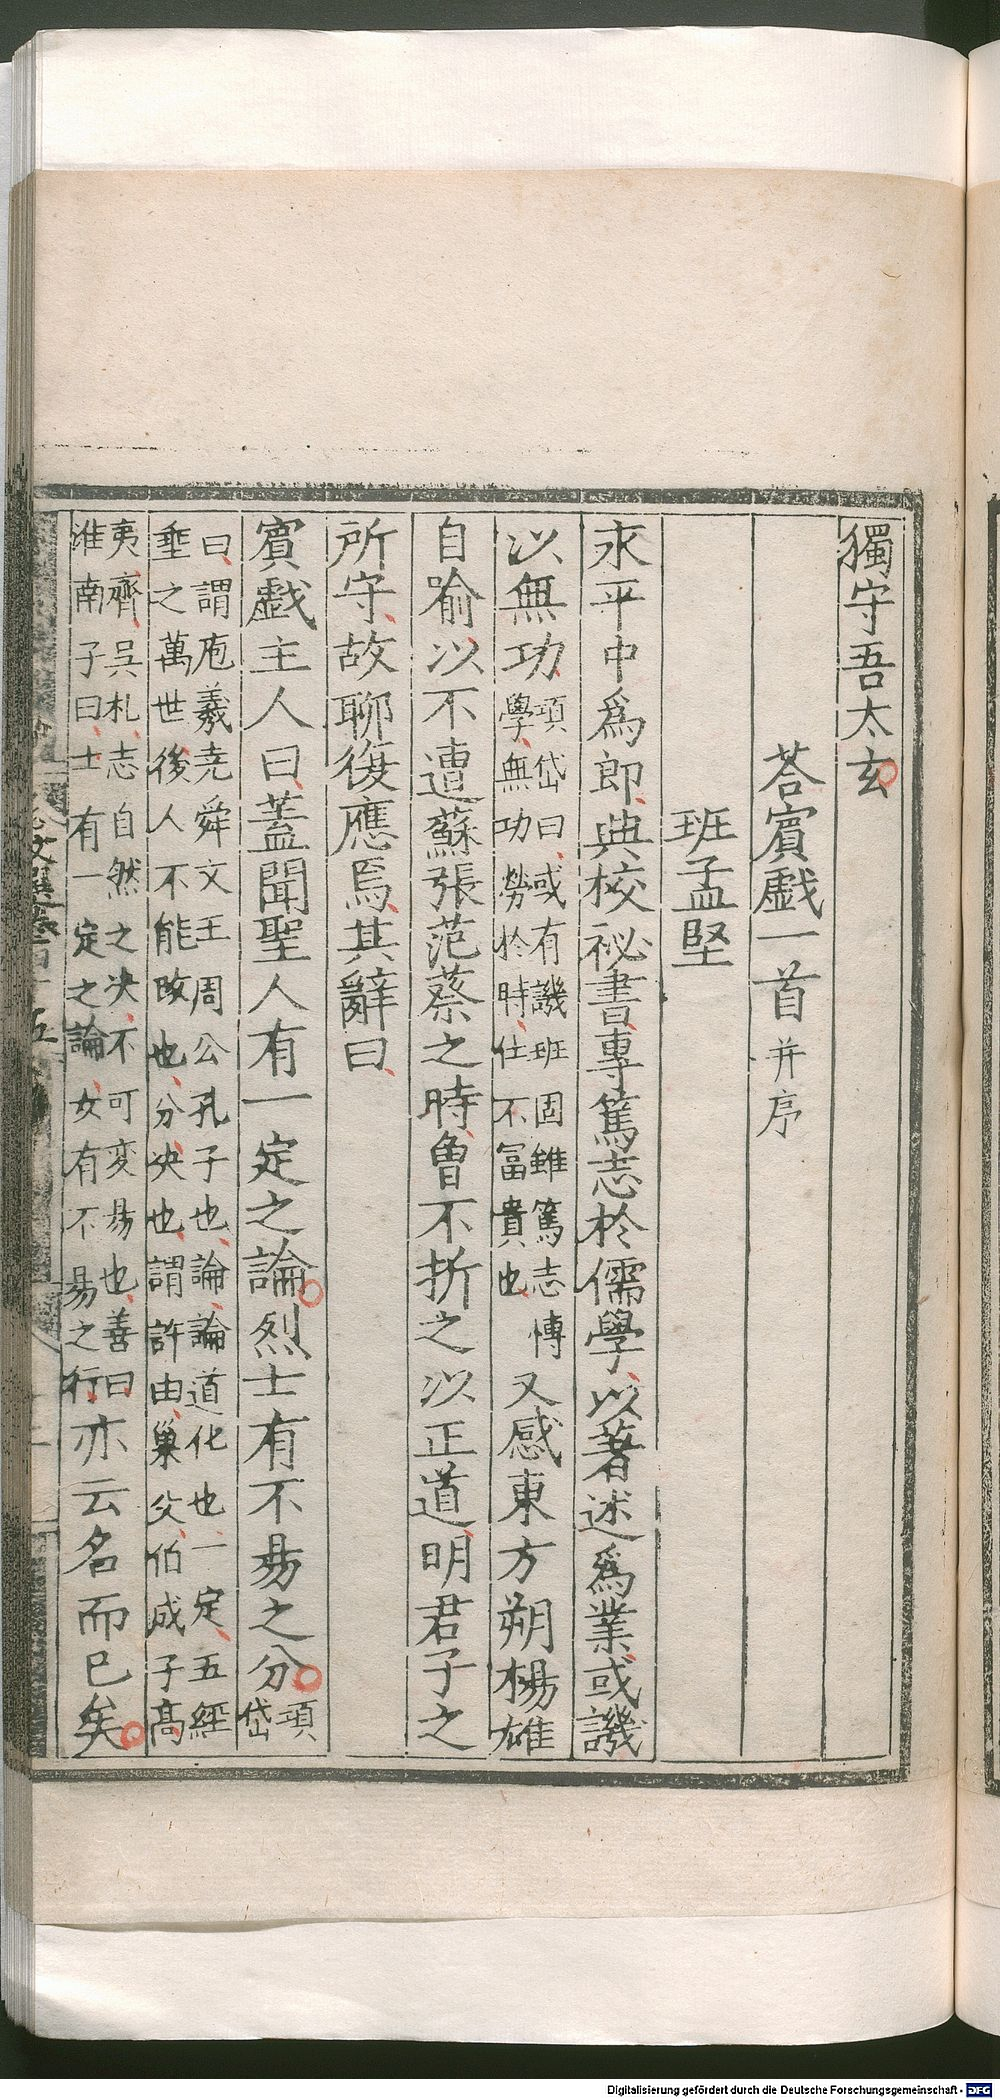 獨守吾太玄
荅賓戲一首并序
班孟堅
永平中爲郎典校祕書專篤志於儒學以著述爲業或譏
以無功項岱曰或有譏班固雖篤志慱學無功勞於時仕不富貴也又感東方朔楊雄
自喻以不遭蘇張范蔡之時曾不折之以正道明君子之
所守故聊復應焉其辭曰
賓戲主人曰蓋聞聖人有一定之論烈士有不易之分項岱
曰謂庖羲堯舜文王周公孔子也論論道化也一定五經
垂之萬世後人不能改也分决也謂許由巢父伯成子髙
夷齊吳札志自然之决不可变易也善曰
淮南子曰士有一定之論女有不易之行亦云名而已矣
文選卷四十五
Digitalisierung gefördert durch die Deutsche Forschungsgemeinschaft - DFG